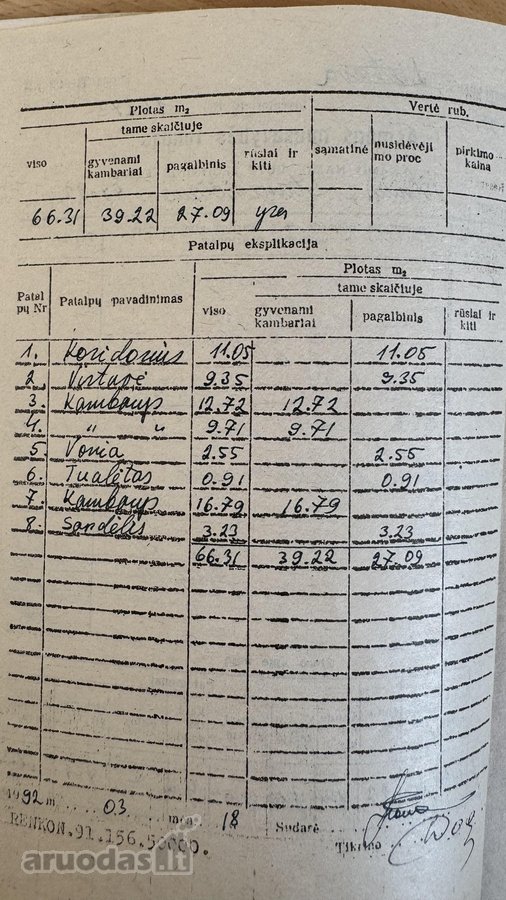 Plotas m2 Vertė rub.
viso tame skaičiuje sąmatinė nusidėvėji mo proc pirkimo kaina
gyvenami kambariai pagalbinis rūsiai ir kiti
66.31 39.22 27.09 yra
Patalpų eksplikacija
Patal pų Nr Patalpų pavadinimas Plotas m2
viso tame skaičiuje
gyvenami kambariai pagalbinis rūsiai ir kiti
1. Koridorius 11.05 11.05
2. Virtuvė 9.35 9.35
3. Kambarys 12.72 12.72
4. " " 9.71 9.71
5. Vonia 2.55 2.55
6. Tualetas 0.91 0.91
7. Kambarys 16.79 16.79
8. Sandėlis 3.23 3.23
66.31 39.22 27.09
1992 m. 03 mėn. 18 Sudarė
RENKON.91.156.50000. Tikrino
aruodas.lt